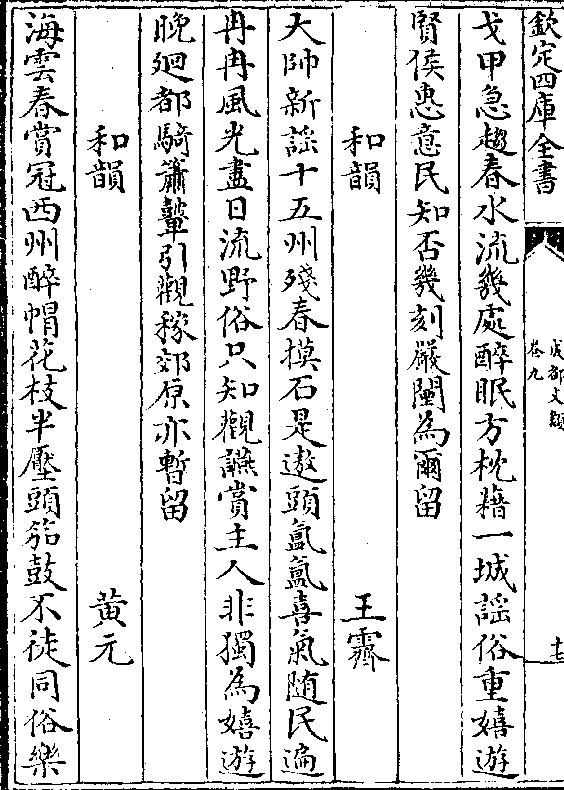 欽定四庫全書
成都文類
卷九
十七
戈甲急趨春水流幾處醉眠方枕藉一城謡俗重嬉遊
賢侯恵意民知否幾刻嚴闉為爾留
和韻
王霽
大帥新謡十五州殘春摸石是遨頭氤氲喜氣随民遍
冉冉風光盡日流野俗只知觀讌賞主人非獨為嬉遊
晚廻都騎簫鼙引觀稼郊原亦暫留
和韻
黄元
海雲春賞冠西州醉帽花枝半壓頭笳鼓不徒同俗樂